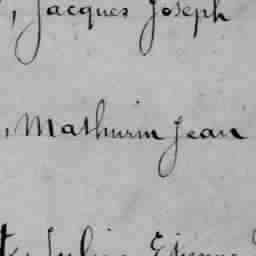 , Jacques Joseph
, Mathurin Jean
Julien Etienne